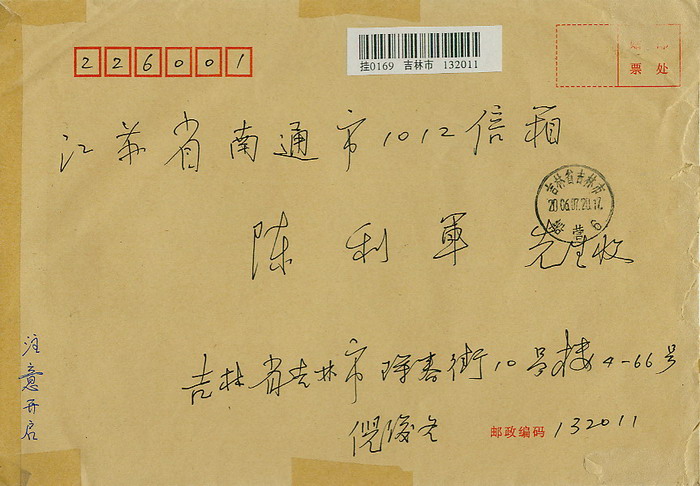 226001
挂0169 吉林市 132011
票 处
江苏省南通市1012信箱
吉林省吉林市
2006.07.20.17
营 6
陈利軍 先生收
注意开启
吉林省吉林市珲春街10号楼4-66号
倪俊
邮政编码 132011